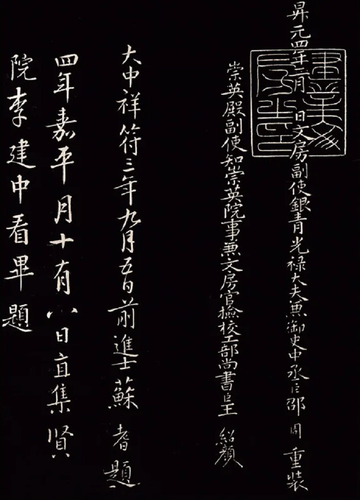 昇元四年二月 日文房副使銀青光祿大夫兼御史中丞臣邵周重裝
崇英殿副使知崇英院事兼文房官檢校工部尚書臣王 紹顏
大中祥符三年九月五日前進士蘇耆題
四年嘉平月十有八日直集賢
院李建中看畢題
建業文房之印